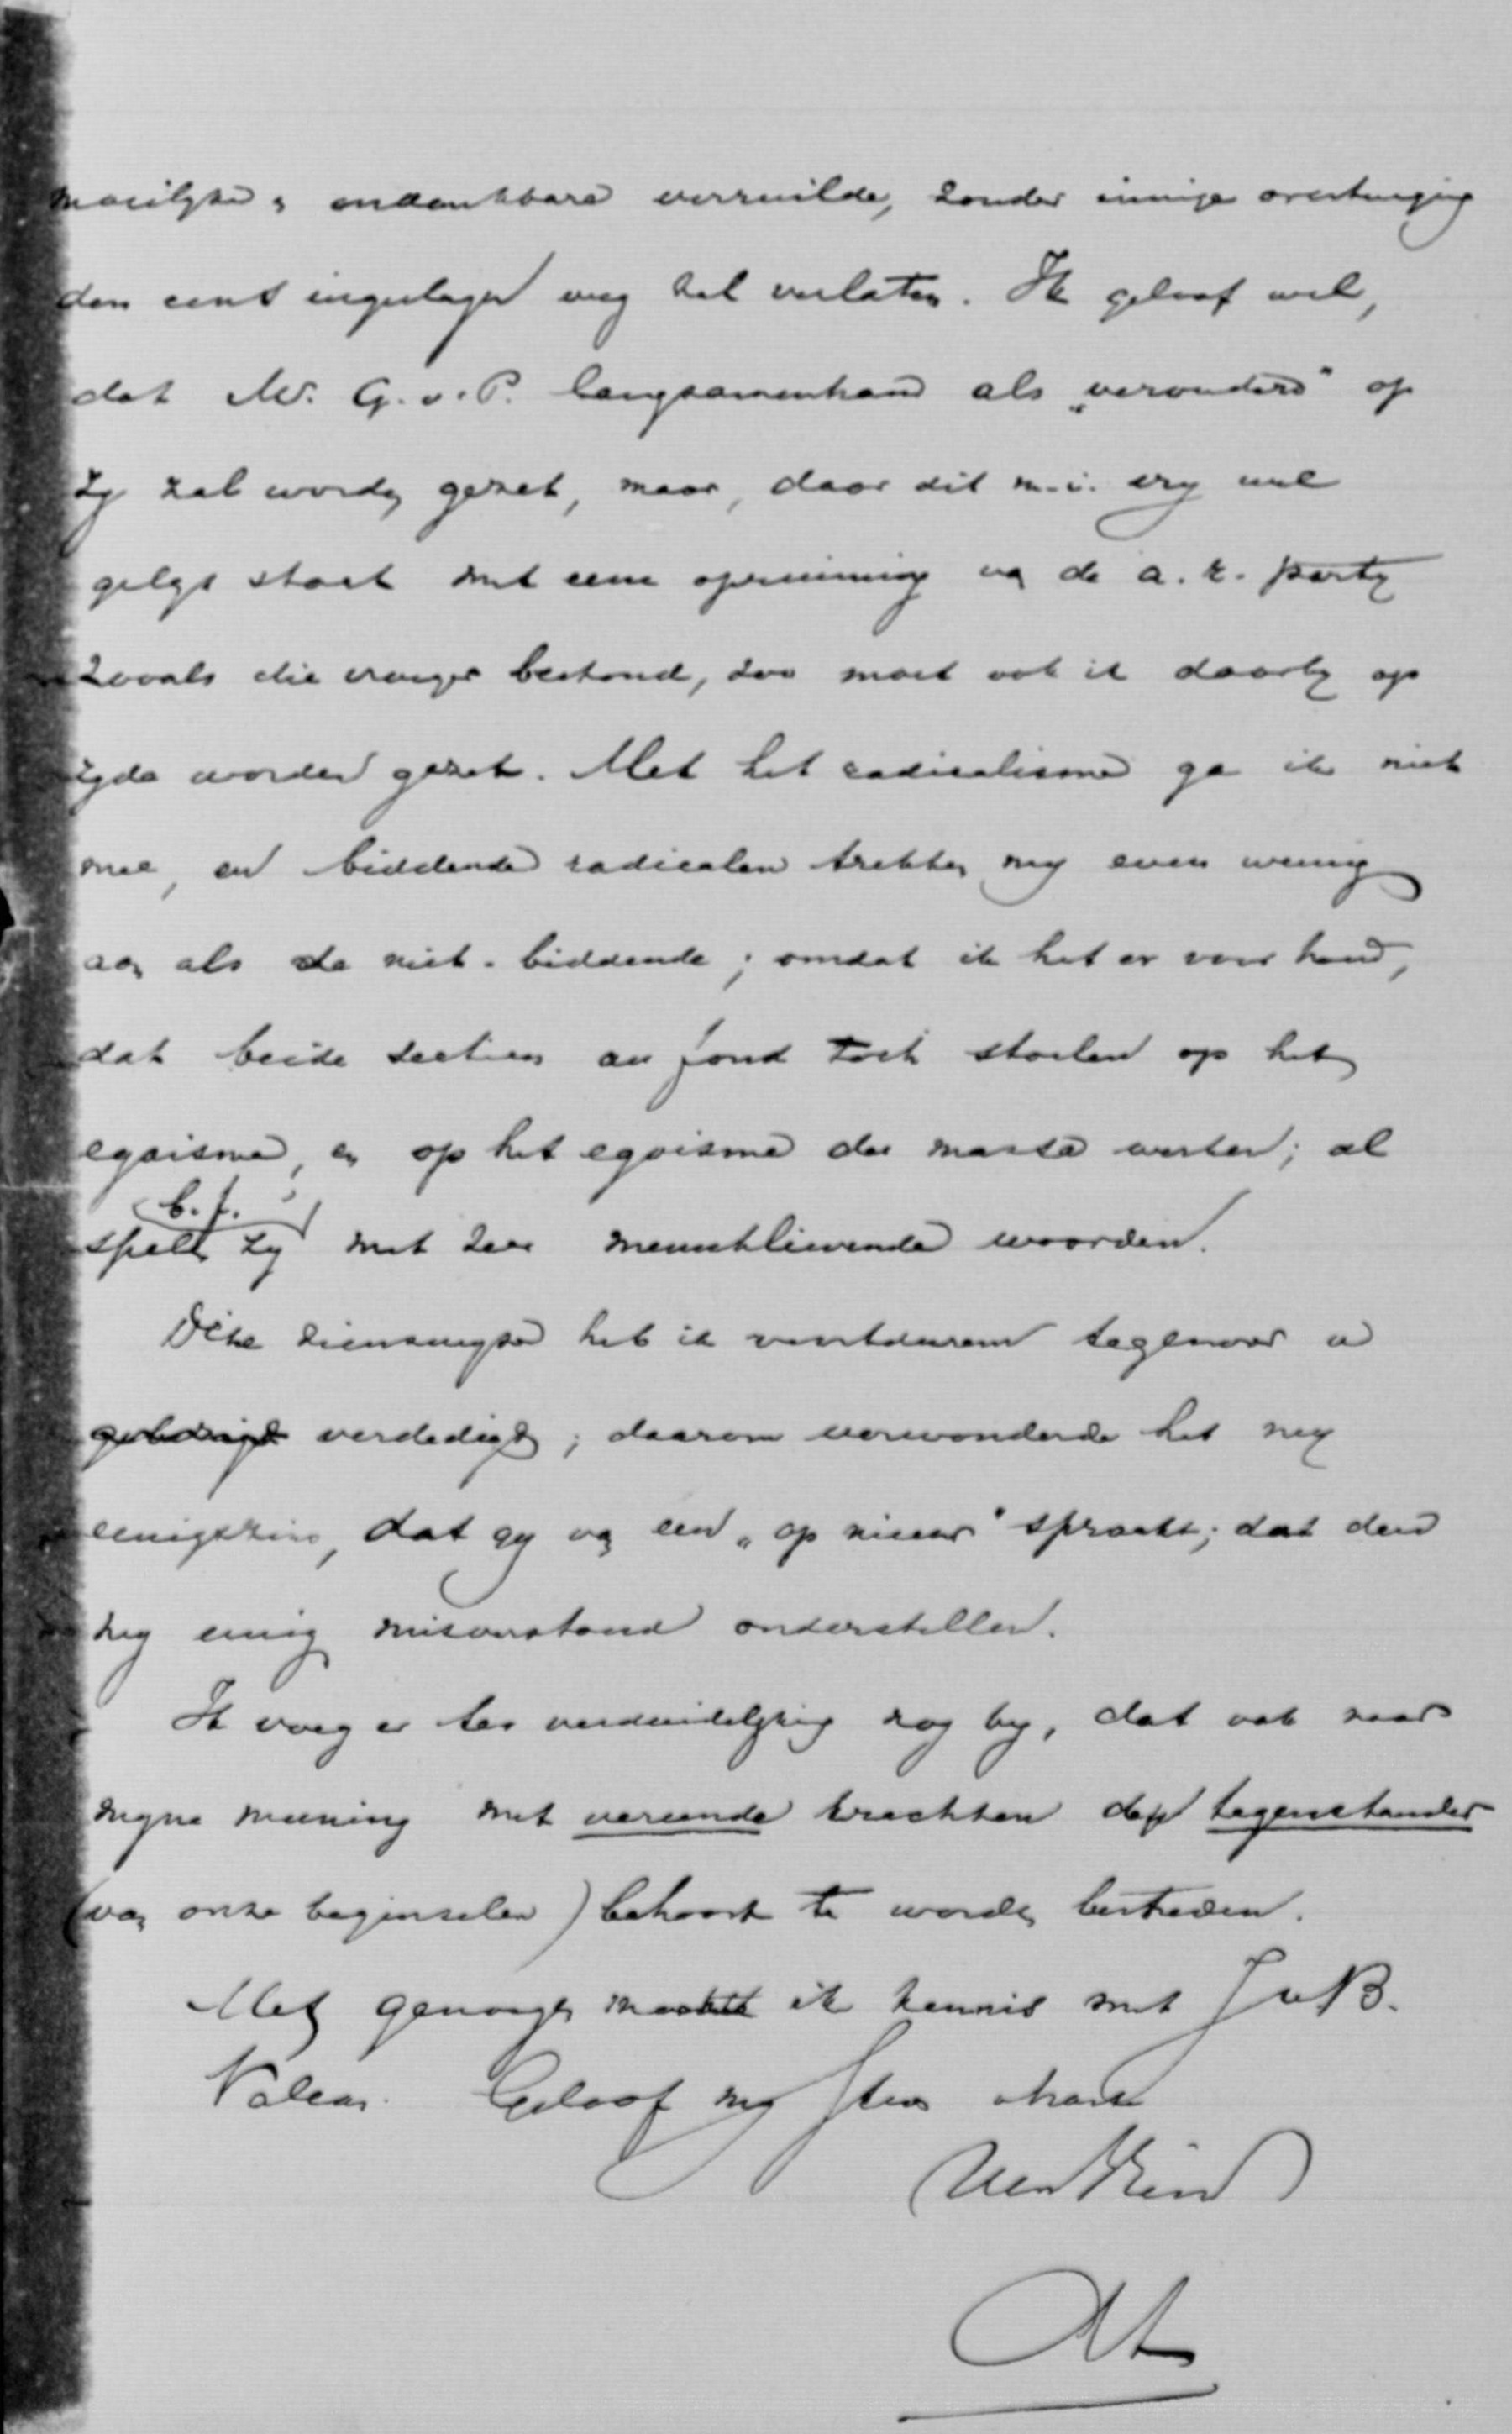 moeilyke & ondankbare verruilde, zonder innige overtuiging
den eens ingeslagen weg zal verlaten. Ik geloof wel,
dat Mr. G.v.P. langzamerhand als „verouderd" op
zy zal worden gezet, maar, daar dit m.i. vry wel
gelyk staat met eene opruiming van de a.r. party
zooals die vroeger bestond, zoo moet ook ik daarby op
zyde worden gezet. Met het radicalisme ga ik niet
mee, en biddende radicalen trekken my even weinig
aan als de niet-biddende; omdat ik het er voor houd,
dat beide secties au fond toch stoelen op het
egoisme, en op het egoisme der massa werken; al
b.f.
spelen zy met zeer menschlievende woorden.
Deze zienswyze heb ik voortdurend tegenover u
verdedigd; daarom verwonderde het my
eenigszins, dat gy van een „op nieuw" spraakt; dat deed
my eenig misverstand onderstellen.
Ik voeg er ter verduidelyking nog by, dat ook naar
myne meening met vereende krachten de tegenstander
(van onze beginselen) behoort te worden bestreden.
Met genoegen maakte ik kennis met J v B.
Geloof my steeds